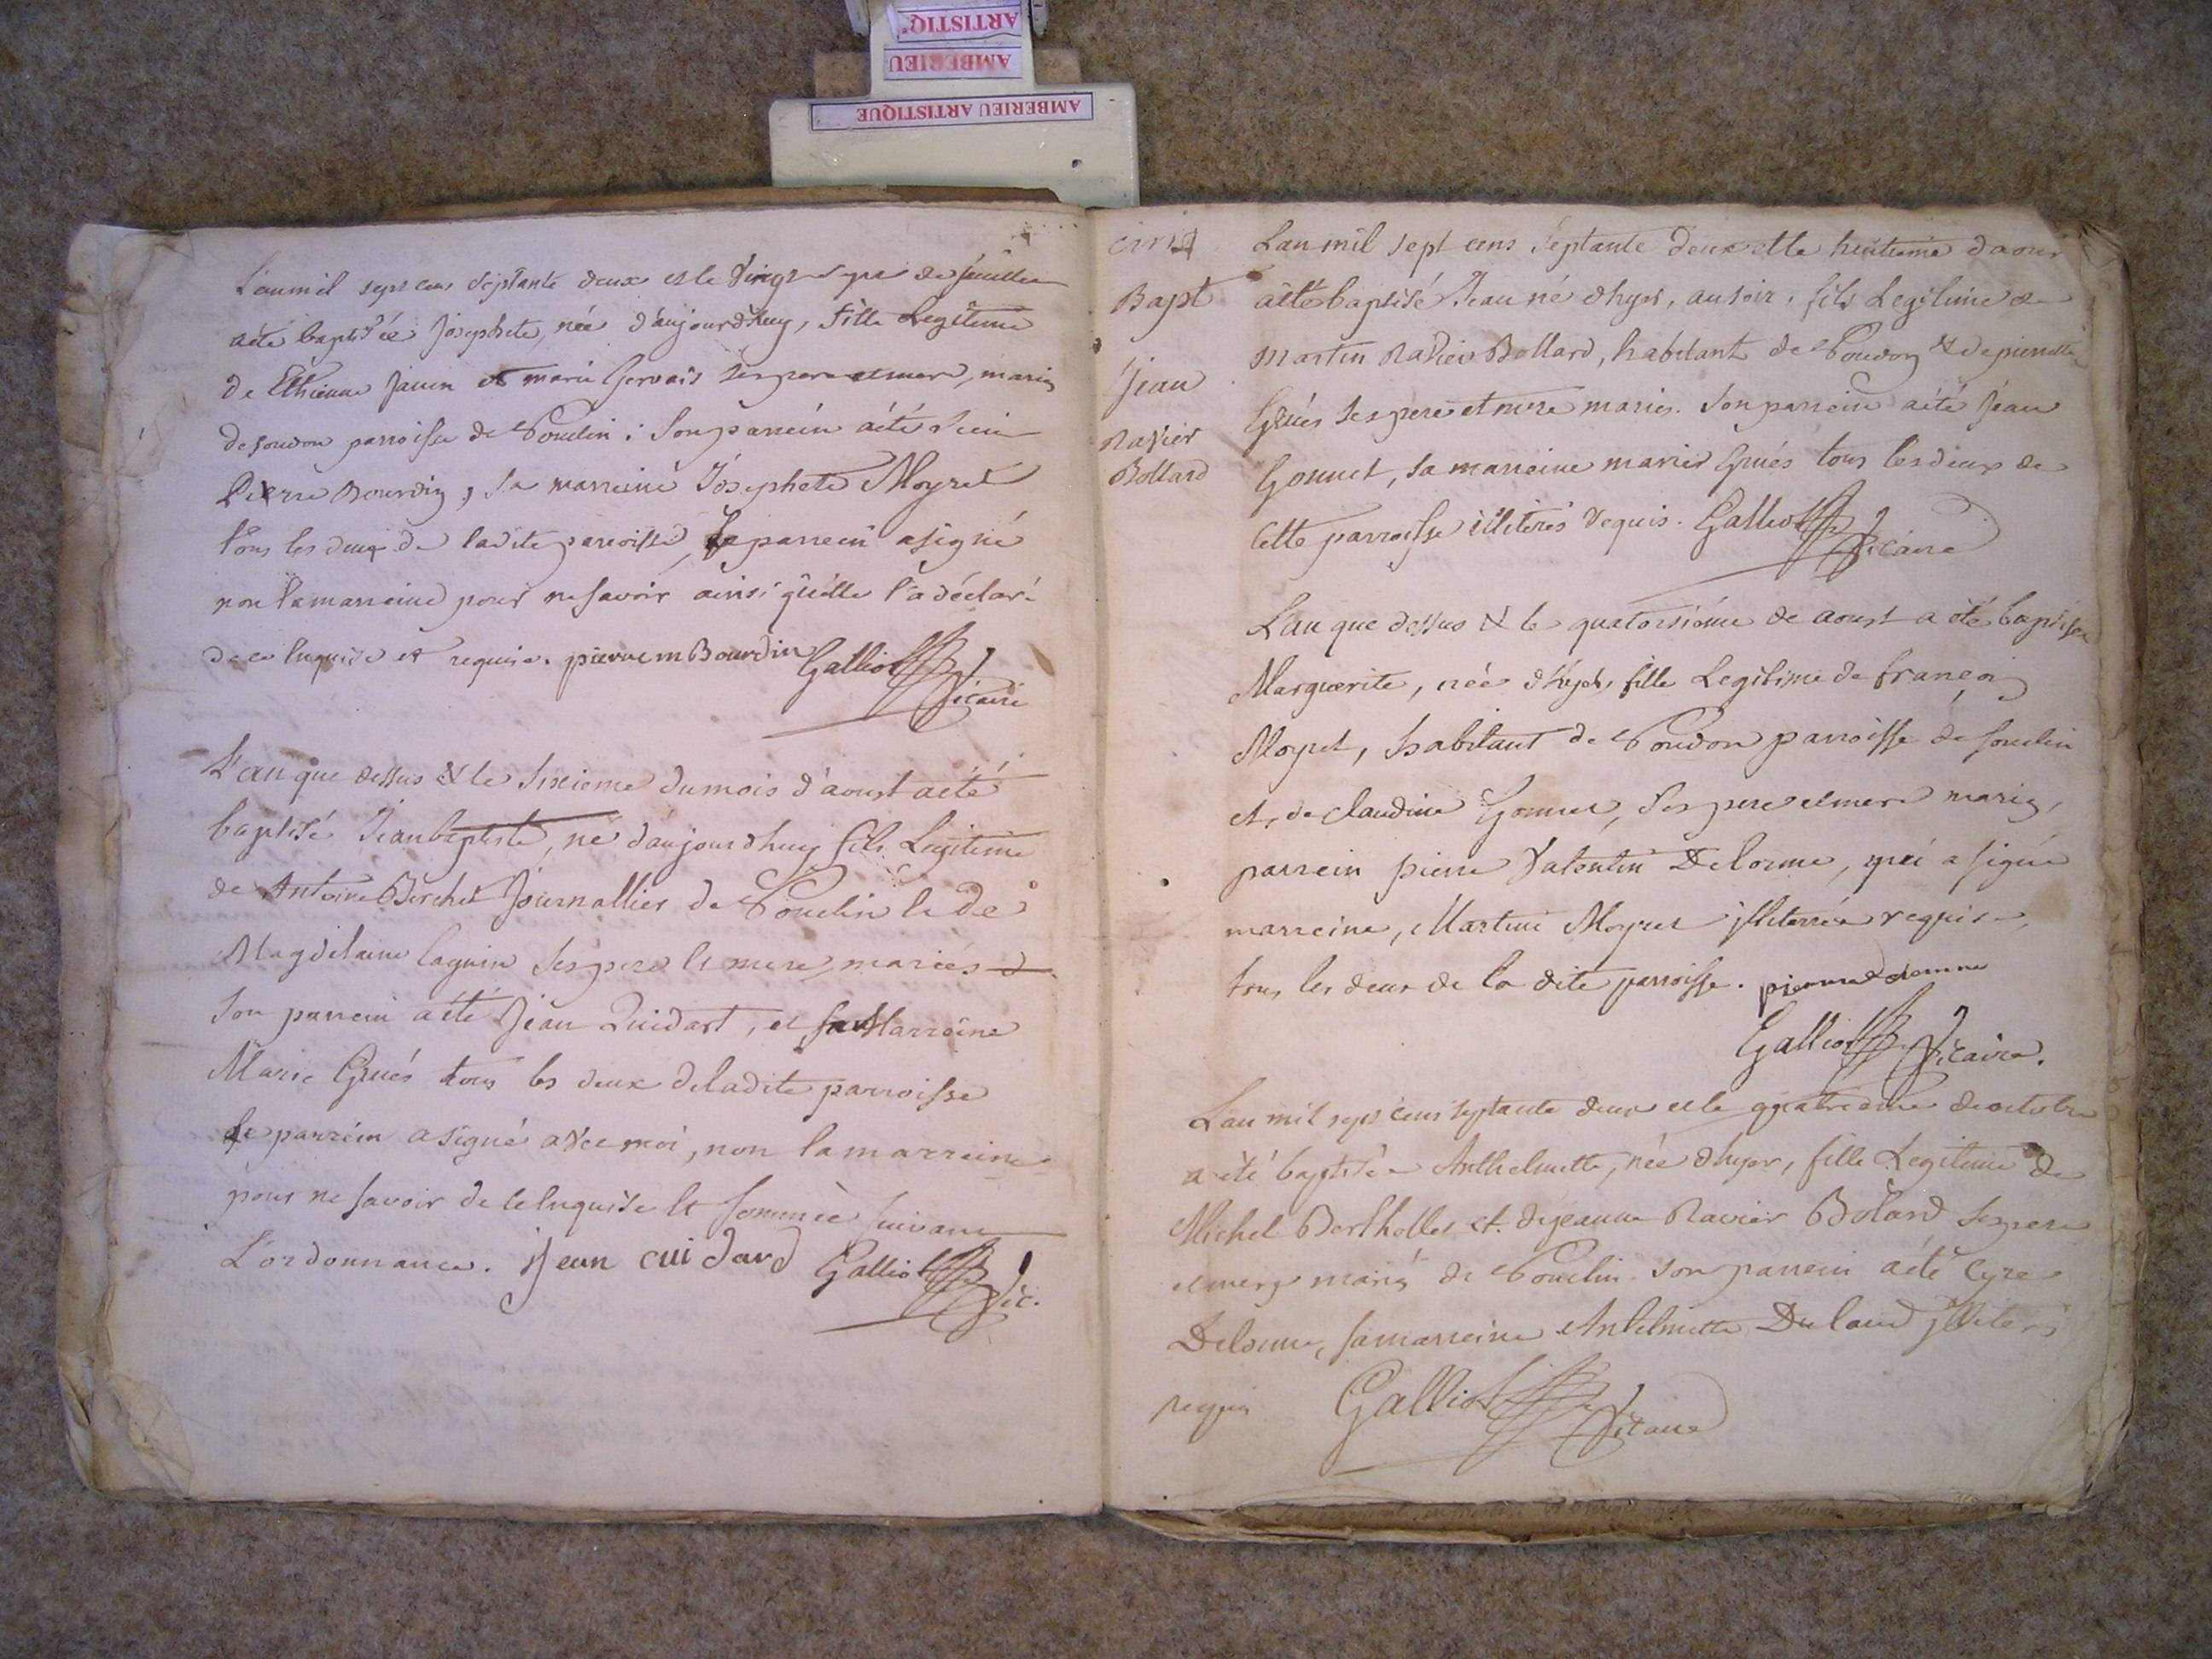 ARTISTIQ
AMBERIEU
AMBERIEU ARTISTIQUE
L'an mil sept cens septante deux et le vingt sept de juillet
a été baptisée Josephete, née d'aujourdhuy, fille Legitime
de Ethienne Janin et marie Gervais ses pere et mere, mariés
de soudon parroisse de Souclin : Son parrein a été Sieur
Pierre Bourdin, sa marreine Josephete Moyret
tous les deux de ladite parroisse, le parrein a signé
non la marreine pour ne savoir ainsi qu'elle l'a déclaré
de ce enquise et requise. pierre m Bourdin Galliot Vicaire
L'an que dessus & le sixieme du mois d'aoust a été
baptisé Jean baptiste, né d'aujourdhuy fils Legitime
de Antoine Berchet Journallier de Souclin & de
Magdelaine ses pere et mere, mariés
Son parrein a été Jean Quidart, et sa Marraine
Marie Grués tous les deux de ladite parroisse
Le parrein a signé avec moi, non la marreine
pour ne savoir de ce enquise et sommée suivant
L'ordonnance. Jean cuidard Galliot Vic.
Bapt
jean
Ravier
Bollard
L'an mil sept cens septante deux et le huitieme d'aout
a été baptisé Jean né d'hyer, au soir, fils Legitime de
Martin Ravier Bollard, habitant de Soudon & de pierrette
Grués ses pere et mere mariés. Son parrein a été Jean
Gonnet, sa marreine marie Grués tous les deux de
Cette parroisse illiterés requis. Galliot Vicaire
L'an que dessus & le quatorsiéme de aoust a été baptisée
Marguerite, née d'hyer, fille Legitime de françois
Moyret, habitant de Soudon parroisse de souclin
et de claudine Gonnet, ses pere et mere mariés,
parrein pierre Valentin Delorme, qui a signé
marreine, Martine Moyret illiterée requise,
tous les deux de la dite parroisse. pierre delorme
Galliot Vicaire.
L'an mil sept cens septante deux et le quatrieme de octobre
a été baptisée Anthelmette, née d'hyer, fille Legitime de
Michel Berthollet et de jeanne Ravier Bolard ses pere
et mere mariés de Souclin. Son parrein a été Cyre
Delorme, sa marreine Antelmette illiterés
requis Galliot Vicaire